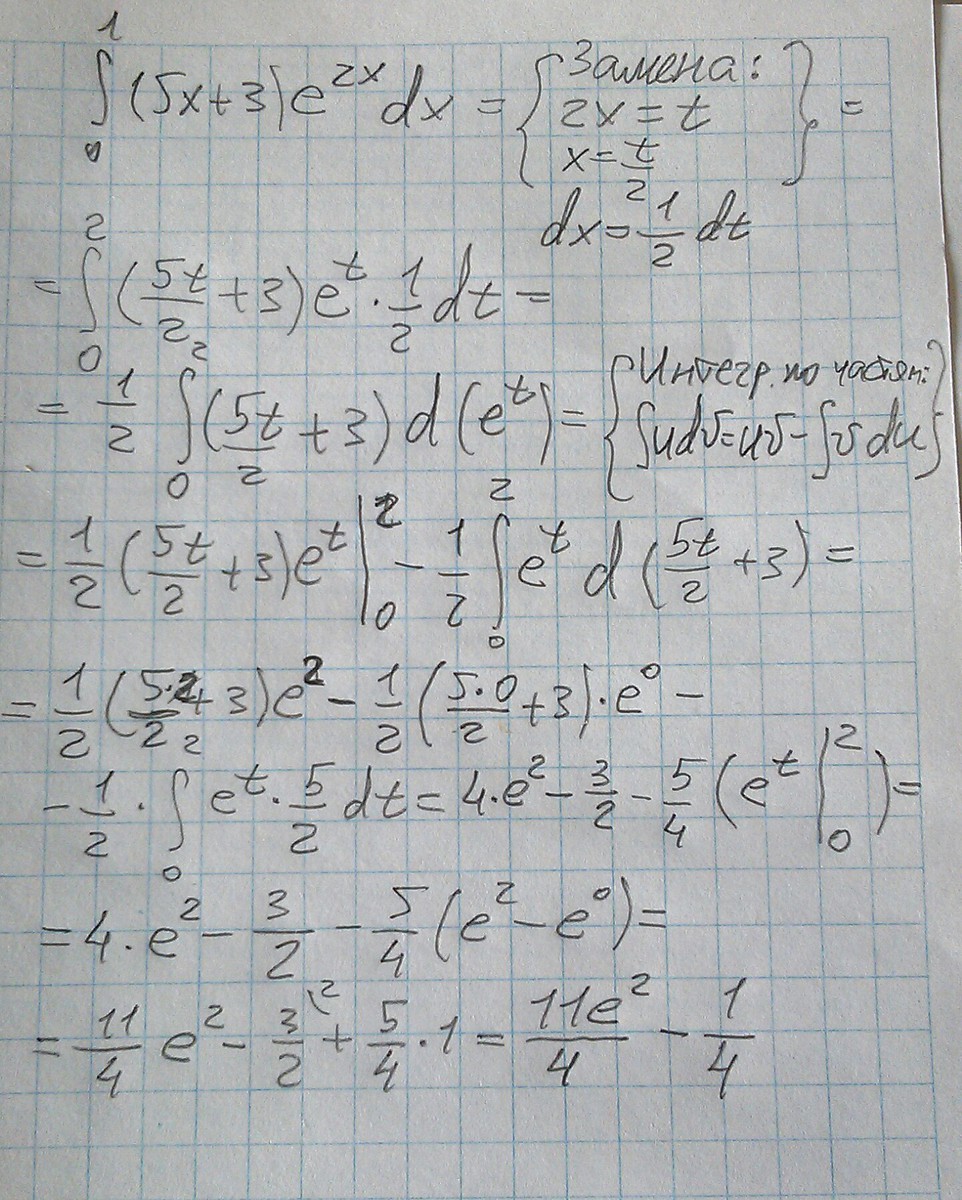 ∫₀¹ (5x+3)e^{2x} dx = { Замена: 2x = t
x = t/2 } =
dx = 1/2 dt
= ∫₀² (5t/2 + 3) e^t · 1/2 dt =
= 1/2 ∫₀² (5t/2 + 3) d(e^t) = { Интегр. по частям: ∫udv = uv - ∫v du }
= 1/2 (5t/2 + 3)e^t |₀² - 1/2 ∫₀² e^t d(5t/2 + 3) =
= 1/2 (5·2/2 + 3)e² - 1/2 (5·0/2 + 3)·e⁰ -
- 1/2 · ∫₀² e^t · 5/2 dt = 4·e² - 3/2 - 5/4 (e^t |₀²) =
= 4·e² - 3/2 - 5/4 (e² - e⁰) =
= 11/4 e² - 3/2 \² + 5/4 · 1 = 11e²/4 - 1/4